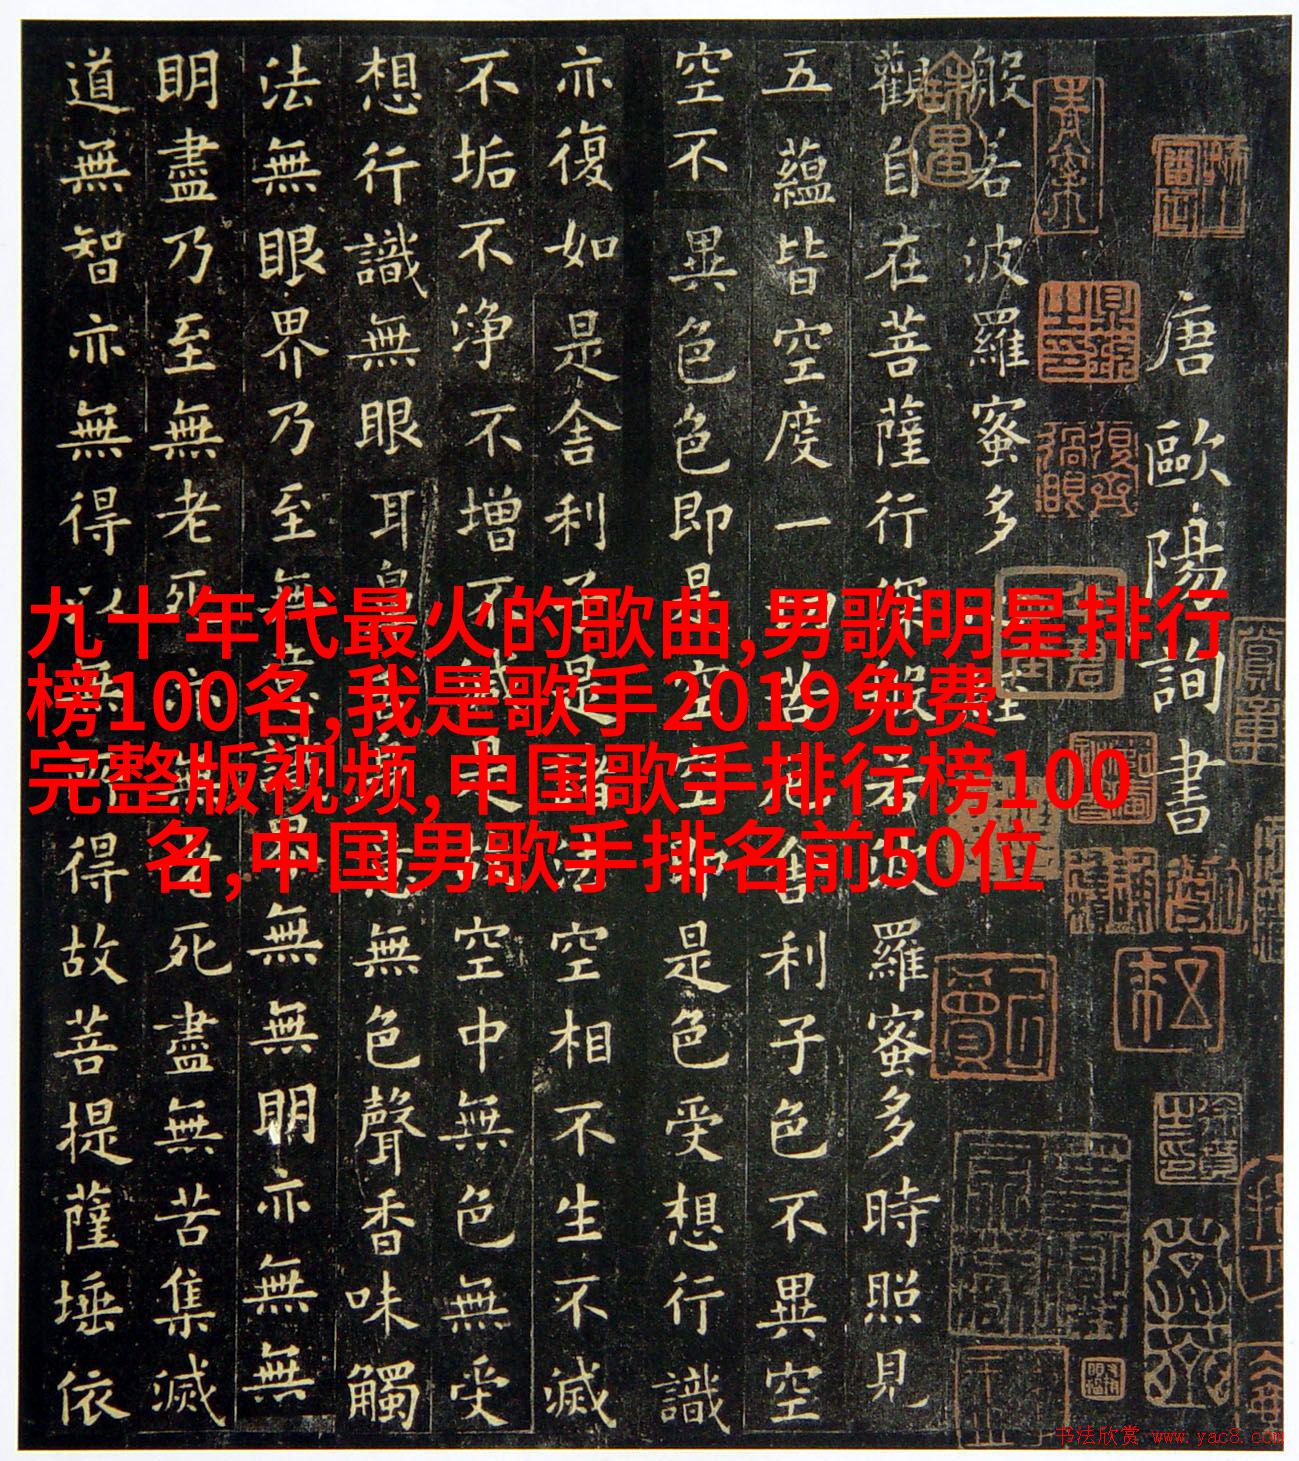 唐歐陽詢書
般若波羅蜜多
觀自在菩薩行深般若波羅蜜多時照見
五蘊皆空度一切苦厄舍利子色不異空
空不異色色即是空空即是色受想行識
亦復如是舍利子是諸法空相不生不滅
不垢不淨不增不減是故空中無色無受
想行識無眼耳鼻舌身意無色聲香味觸
法無眼界乃至無意識界無無明亦無無
明盡乃至無老死亦無老死盡無苦集滅
道無智亦無得以無所得故菩提薩埵依
九十年代最火的歌曲,男歌明星排行
榜100名,我是歌手2019免费
完整版视频,中国歌手排行榜100
名,中国男歌手排名前50位
书法欣赏 www.yac8.com